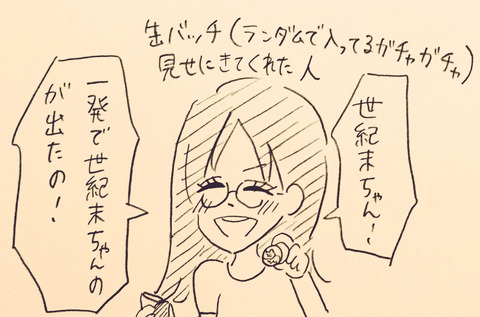 缶バッチ(ランダムで入ってるガチャガチャ)
見せにきてくれた人
世紀末ちゃん!
一発で世紀末ちゃんの
が出たの!